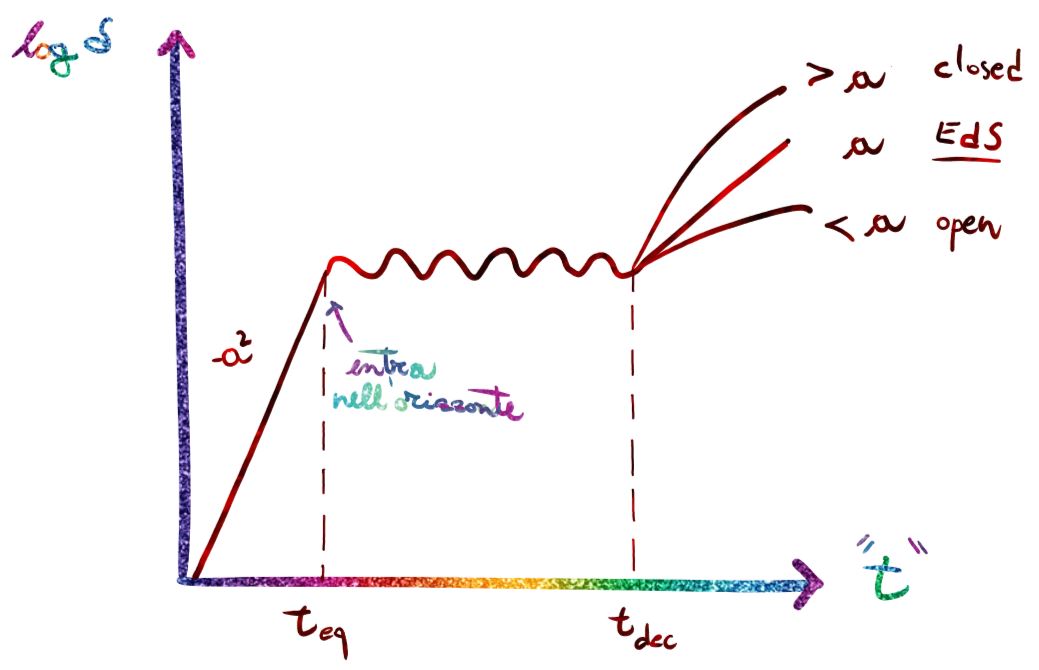 log δ
> a closed
a EdS
< a open
a²
entra
nell'orizzonte
"t"
t_eq
t_dec